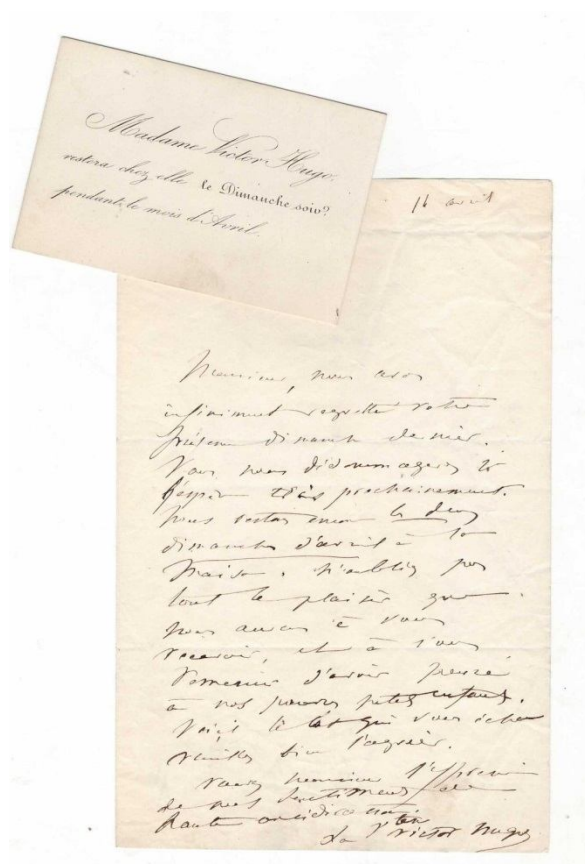 Madame Victor Hugo.
restera chez elle le Dimanche soir
pendant le mois d'Avril.
16 avril
Monsieur, nous avons
infiniment regretté votre
présence dimanche dernier.
Vous nous dédommagerez
j'espère très prochainement.
Nous restons encore les deux
dimanches d'avril à la
maison. N'oubliez pas
tout le plaisir que
nous aurons à vous
recevoir, et à vous
remercier d'avoir pensé
à nos pauvres petits enfants.
Voici le lot qui vous
veuillez bien l'agréer.
monsieur l'expression
de mes sentiments de
haute considération
Victor Hugo